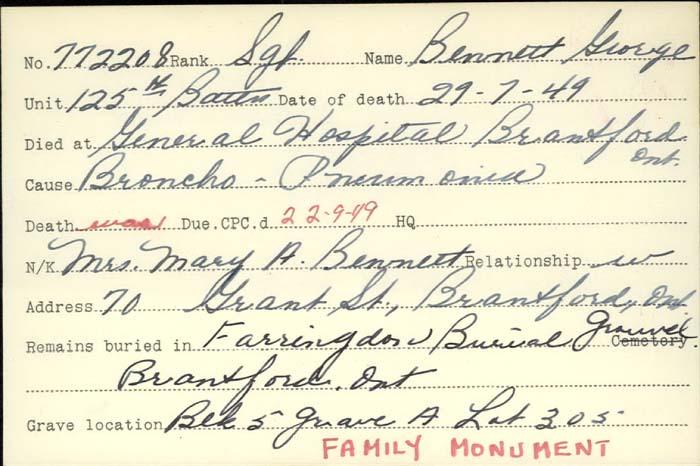 No. 772208 Rank Sgt. Name Bennett George
Unit 125th Battn Date of death 29-7-49
Died at General Hospital Brantford Ont.
Cause Broncho - Pneumonia
Death was Due. CPC.d 22-9-49 HQ
N/K Mrs. Mary A. Bennett Relationship w
Address 70 Grant St., Brantford, Ont.
Remains buried in Farringdon Burial Ground. Cemetery
Brantford. Ont
Grave location Blk 5 Grave A Lot 305
FAMILY MONUMENT